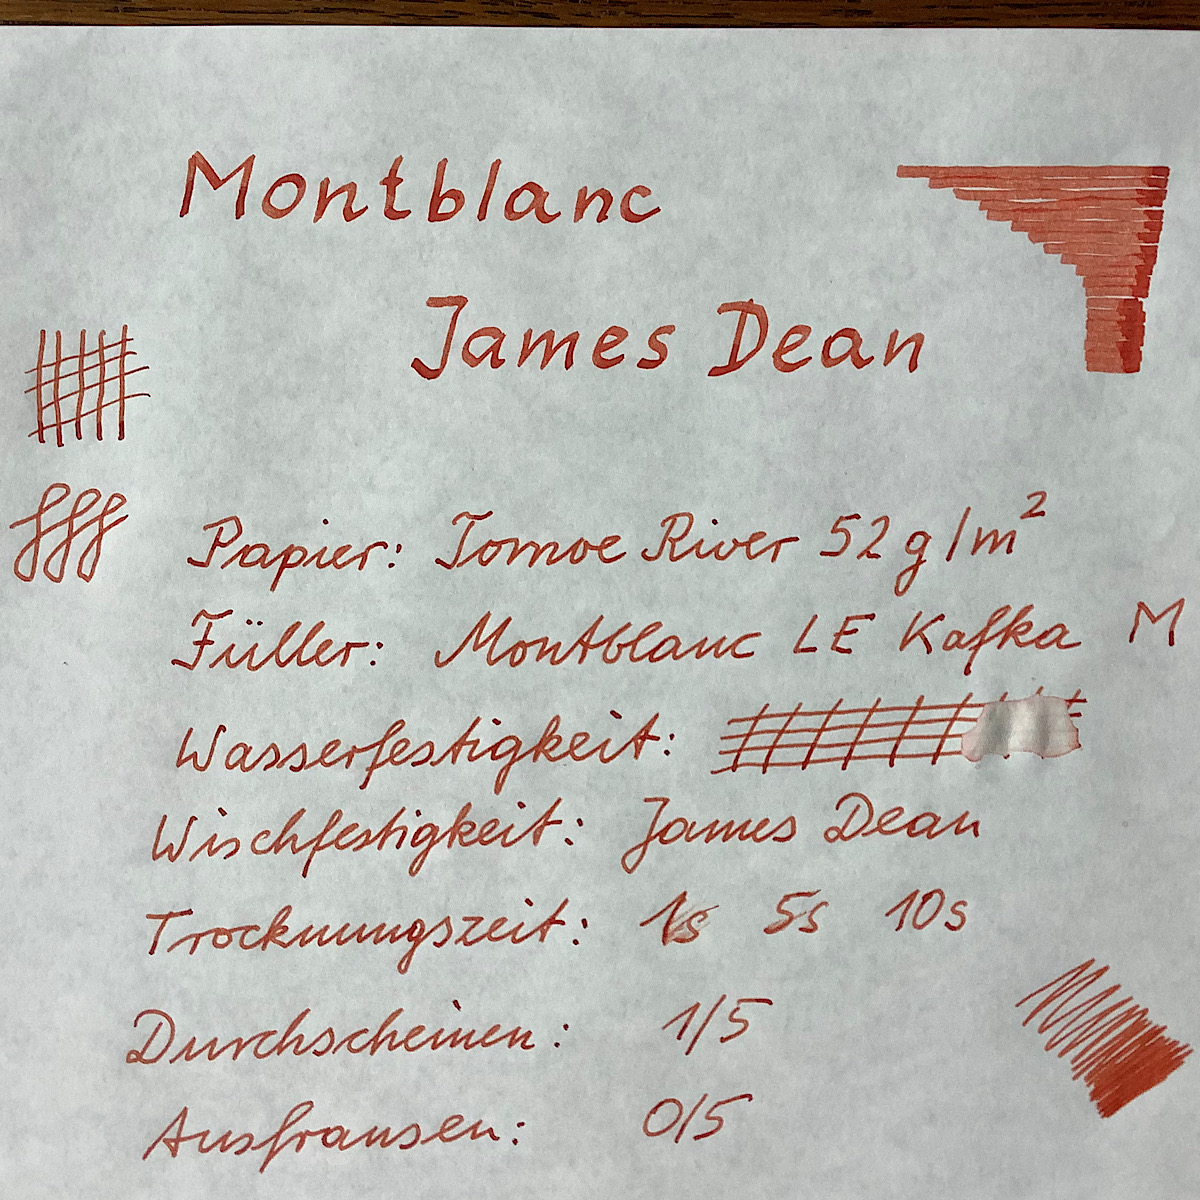 Montblanc
James Dean
Papier: Tomoe River 52 g/m²
Füller: Montblanc LE Kafka M
Wasserfestigkeit:
Wischfestigkeit: James Dean
Trocknungszeit: 1s 5s 10s
Durchscheinen: 1/5
Ausfransen: 0/5